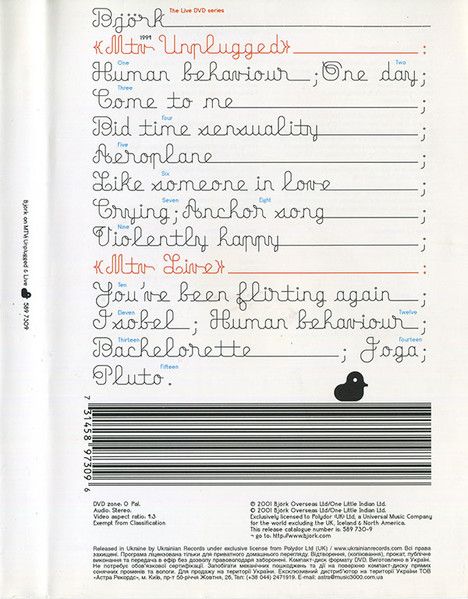 Björk The Live DVD series
1994
«Mtv Unplugged» :
One Two
Human behaviour ; One day ;
Three
Come to me ;
Four
Bid time sensuality ;
Five
Aeroplane ;
Six
Like someone in love ;
Seven Eight
Crying ; Anchor song ;
Nine
Violently happy ;
«Mtv Live» :
Ten
You've been flirting again ;
Eleven Twelve
Isobel ; Human behaviour ;
Thirteen Fourteen
Bachelorette ; Joga ;
Fifteen
Pluto.
Björk on MTV: Unplugged & Live 589 730-9
7 31458 97309 6
DVD zone: 0 Pal.
Audio: Stereo.
Video aspect ratio: 4:3
Exempt from Classification
© 2001 Björk Overseas Ltd/One Little Indian Ltd.
℗ 2001 Björk Overseas Ltd/One Little Indian Ltd.
Exclusively licensed to Polydor (UK) Ltd, a Universal Music Company
for the world excluding the UK, Iceland & North America.
This release catalogue number is: 589 730-9
go to: http://www.bjork.com
Released in Ukraine by Ukrainian Records under exclusive license from Polydor Ltd (UK) / www.ukrainianrecords.com Всі права
захищені. Програма ліцензована тільки для приватного домашнього перегляду. Відтворення, (копіювання), прокат, публічне
виконання та передача в ефір без дозволу правовласників заборонені. Компакт-диск формату DVD. Виготовлено в Україні.
Не потребує обов'язкової сертифікації. Запобігати механічних пошкоджень та дії на поверхню компакт-диску прямих
сонячних променів та вологи. Для продажу на території України. Ексклюзивний дистриб'ютор на території України ТОВ
«Астра Рекордс», м. Київ, пр-т 50-річчя Жовтня, 26, Тел: (+38 044) 2471919, E-mail: astra@music3000.com.ua